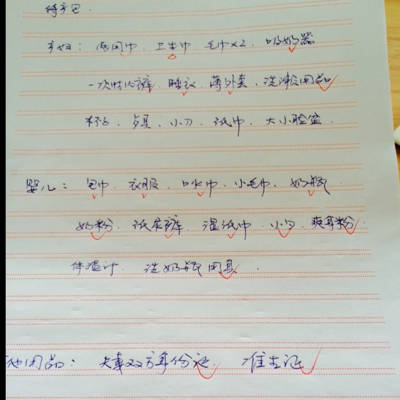 待产包
产妇：产用巾、卫生巾、毛巾×2、吸奶器
一次性内裤、睡衣、薄外套、洗漱用品
杯子、餐具、小刀、纸巾、大小脸盆
婴儿：包巾、衣服、口水巾、小毛巾、奶瓶
奶粉、纸尿裤、湿纸巾、小勺、爽身粉
体温计 洗奶瓶用具
他用品：夫妻双方身份证、准生证